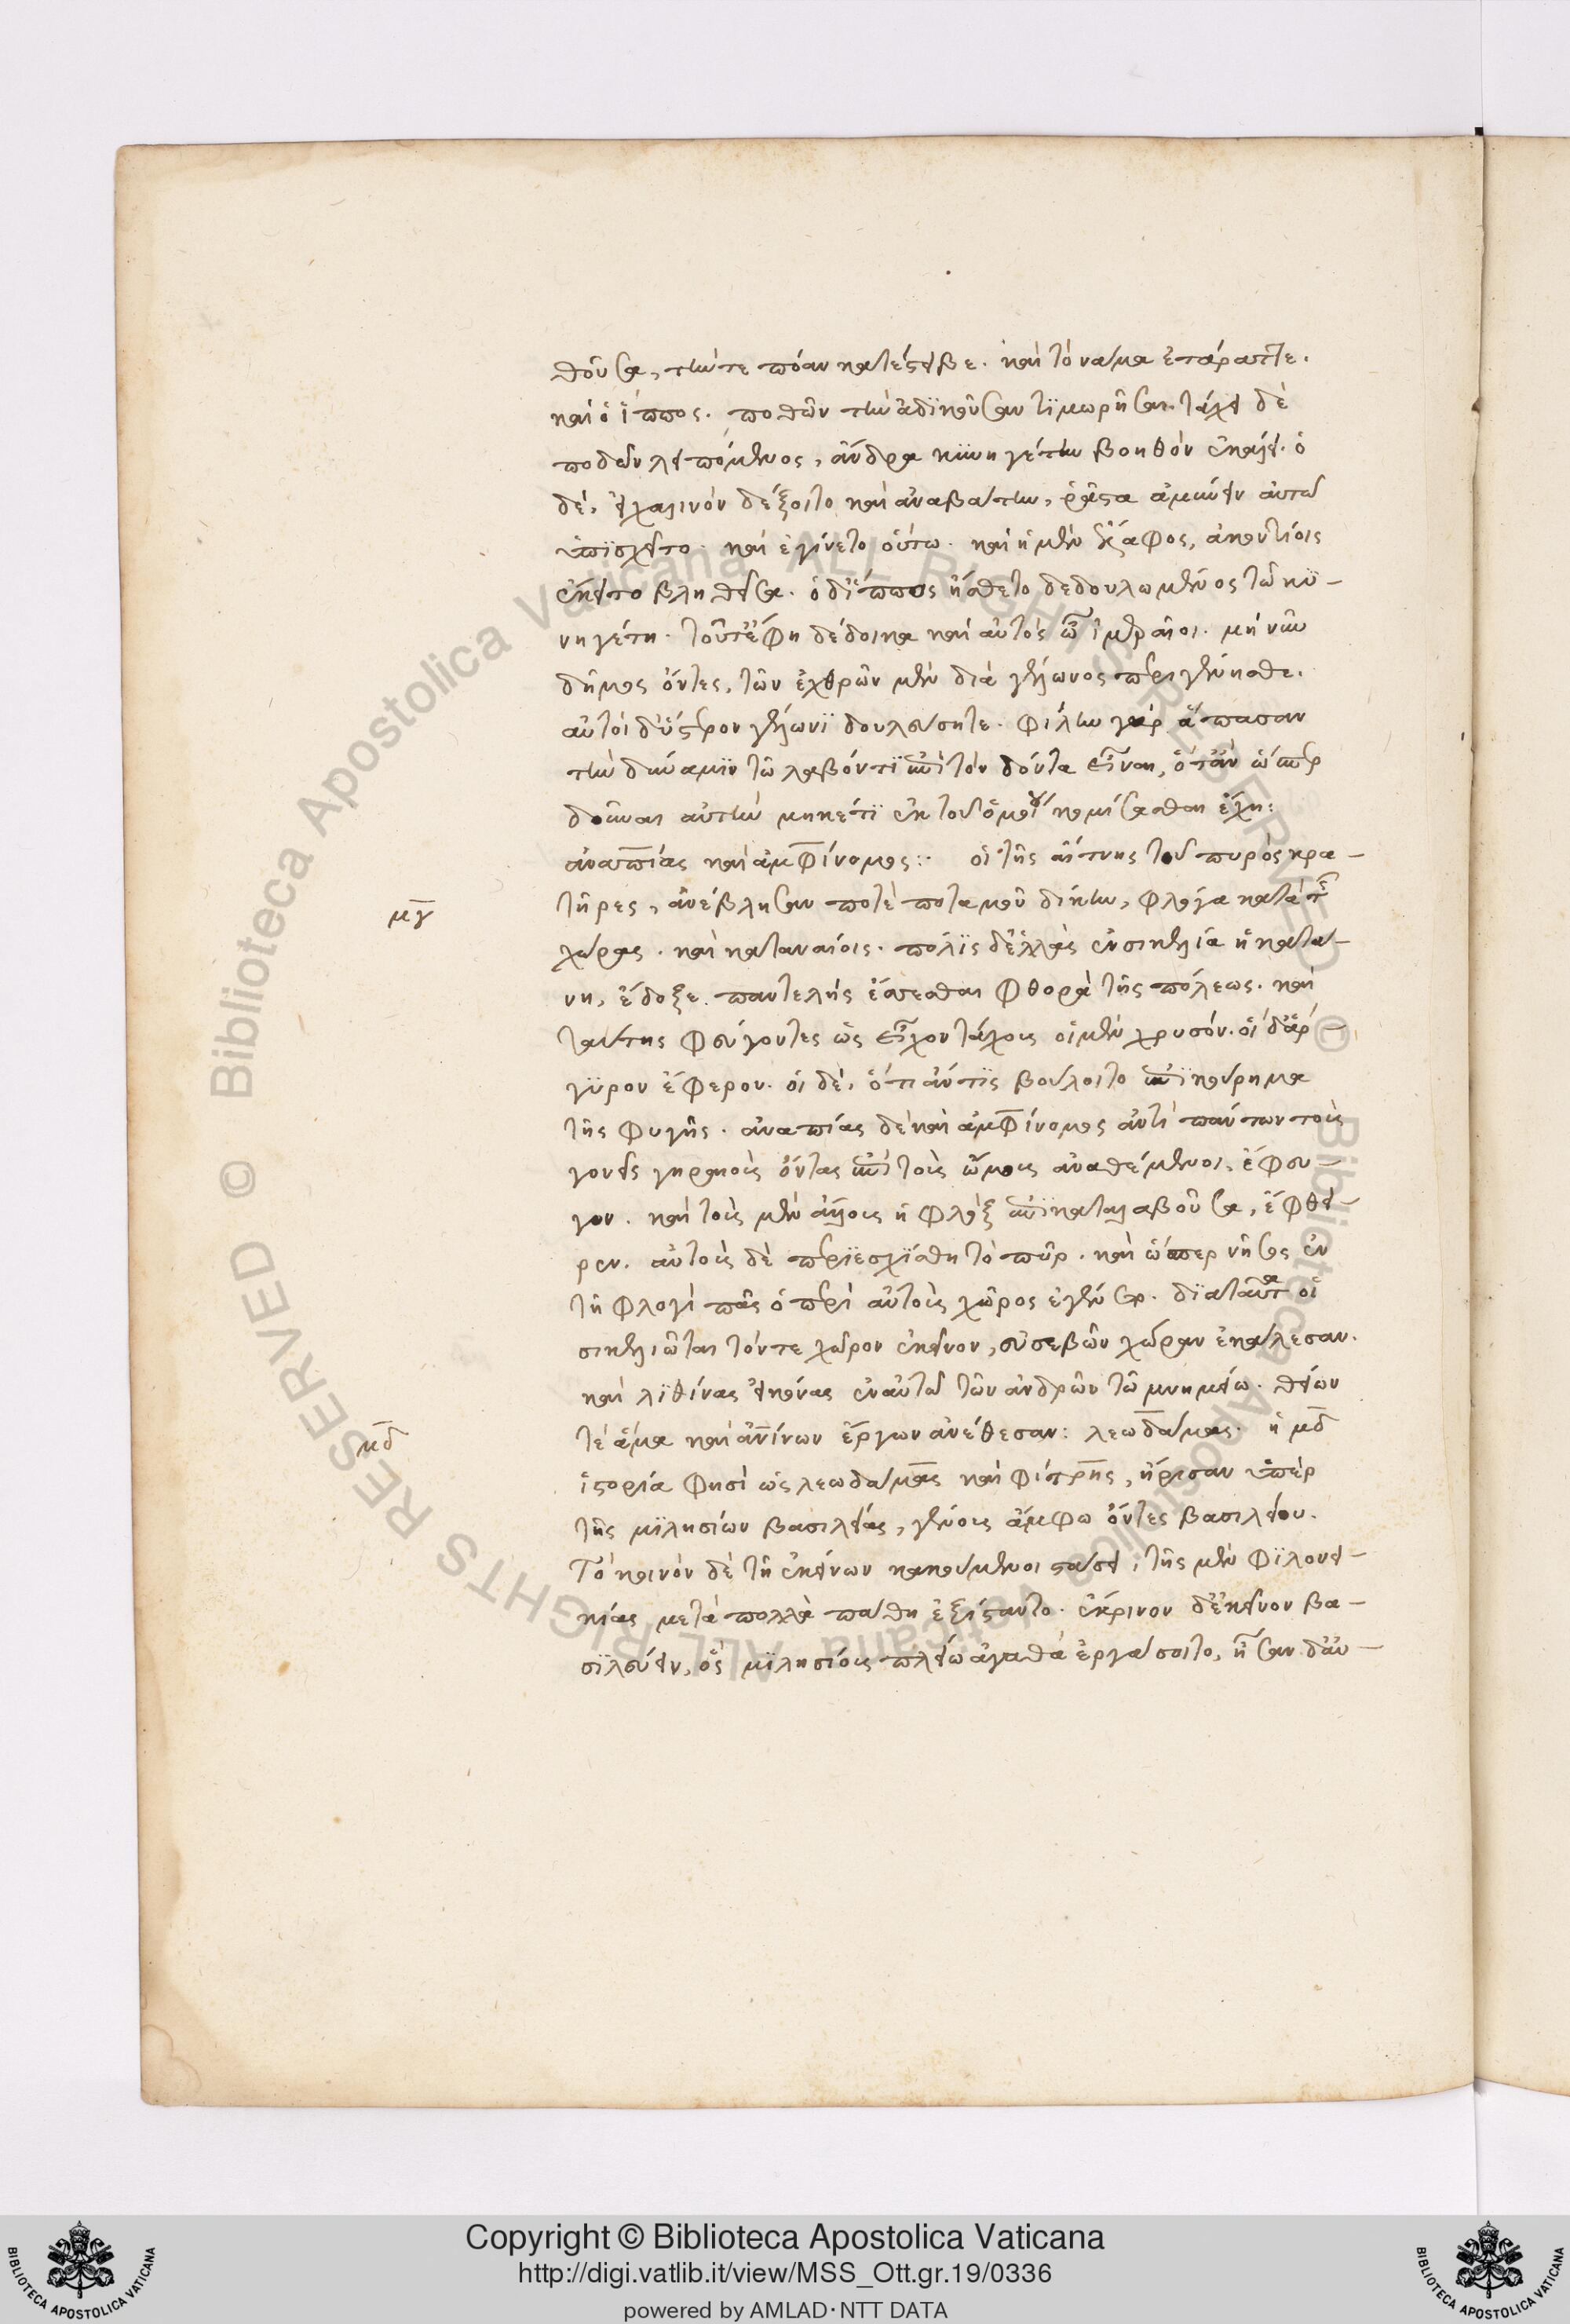 θοῦσα, τήν τε πόαν κατέστειβε. καὶ τὸ νᾶμα ἐτάραττε.
καὶ ὁ ἵππος. ποθῶν τὴν ἀδϊκοῦσαν τϊμωρῆσαι. τάχει δὲ
ποδῶν λειπόμενος, ἄνδρα κϋνηγέτην βοηθὸν ἐκάλει. ὁ
δὲ, εἰ χαλινὸν δέξοιτο καὶ ἀναβάτην, ῥᾷστα ἀμυνεῖν αὐτῶ
ὑπϊσχνεῖτο. καὶ ἐγίνετο οὕτω. καὶ ἡ μὲν ἔλαφος, ἀκοντίοις
ἔκειτο βληθεῖσα. ὁ δ' ἵππος ᾔσθετο δεδουλωμένος τῶ κϋ-
νηγέτη. τοῦτ' ἔφη δέδοικα καὶ αὐτὸς ὦ ἱμεραῖοι. μὴ νῦν
δῆμος ὄντες, τῶν ἐχθρῶν μὲν διὰ γέλωνος περιγένησθε.
αὐτοὶ δ' ὕστερον γέλωνϊ δουλεύσητε. φίλην γὰρ ἅπασαν
τὴν δύναμϊν τῶ λαβόντϊ ἐπὶ τὸν δόντα εἶναι, ὅταν ὥσπερ
δοῦναι αὐτὴν μηκέτϊ ἐκ τοῦ ὁμοίου κομίσασθαι ἔχη:
ἀναπίας καὶ ἀμφίνομος:· οἱ τῆς αἴτνης τοῦ πυρὸς κρα-
μγ
τῆρες, ἀνέβλησάν ποτε ποταμοῦ δίκην, φλόγα κατὰ τῆς
χώρας. καὶ καταναίοις. πόλϊς δ' ἑλλὰς ἐν σικελία ἡ κατά-
νη, ἔδοξε παντελὴς ἔσεσθαι φθορὰ τῆς πόλεως. καὶ
ταύτης φεύγοντες ὡς εἶχον τάχους οἱ μὲν χρυσόν. οἱ δ' ἄρ-
γϋρον ἔφερον. οἱ δὲ, ὅ τι ἄν τϊς βούλοιτο ἐπϊκούρημα
τῆς φυγῆς. ἀναπίας δὲ καὶ ἀμφίνομος ἀντὶ πάντων τοὺς
γονεῖς γηραιοὺς ὄντας ἐπὶ τοὺς ὤμους ἀναθέμενοι, ἔφευ-
γον. καὶ τοὺς μὲν ἄλλους ἡ φλὸξ ἐπϊκαταλαβοῦσα, ἔφθει-
ρεν. αὐτοὺς δὲ περϊεσχίσθη τὸ πῦρ. καὶ ὥσπερ νῆσος ἐν
τῆ φλογὶ πᾶς ὁ περὶ αὐτοὺς χῶρος ἐγένετο. δϊὰ ταῦτα οἱ
σικελιῶται τόν τε χῶρον ἐκεῖνον, εὐσεβῶν χώραν ἐκάλεσαν.
καὶ λϊθίνας εἰκόνας ἐν αὐτῶ τῶν ἀνδρῶν τῶ μνημείω. θείων
τὲ ἅμα καὶ ἀνθρωπίνων ἔργων ἀνέθεσαν: λεωδάμας. ἡ μδ
μδ
ἱστορία φησὶ ὡς λεωδάμας καὶ φίτρης, ἤρισαν ὑπὲρ
τῆς μϊλησίων βασιλείας, γένους ἄμφω ὄντες βασιλείου.
Τὸ κοινὸν δὲ τῆ ἐκείνων κακούμενοι στάσει, τῆς μὲν φϊλονει-
κίας μετὰ πολλὰ πάθη ἐξίσταντο. ἔκρινον δ' ἐκεῖνον βα-
σϊλεύειν, ὃς μϊλησίους πλείω ἀγαθὰ ἐργάσοιτο, ἦσαν δ' αὐ-
Copyright © Biblioteca Apostolica Vaticana
http://digi.vatlib.it/view/MSS_Ott.gr.19/0336
powered by AMLAD·NTT DATA
BIBLIOTECA APOSTOLICA VATICANA
BIBLIOTECA APOSTOLICA VATICANA
© Biblioteca Apostolica Vaticana ALL RIGHTS RESERVED
© Biblioteca Apostolica Vaticana ALL RIGHTS RESERVED